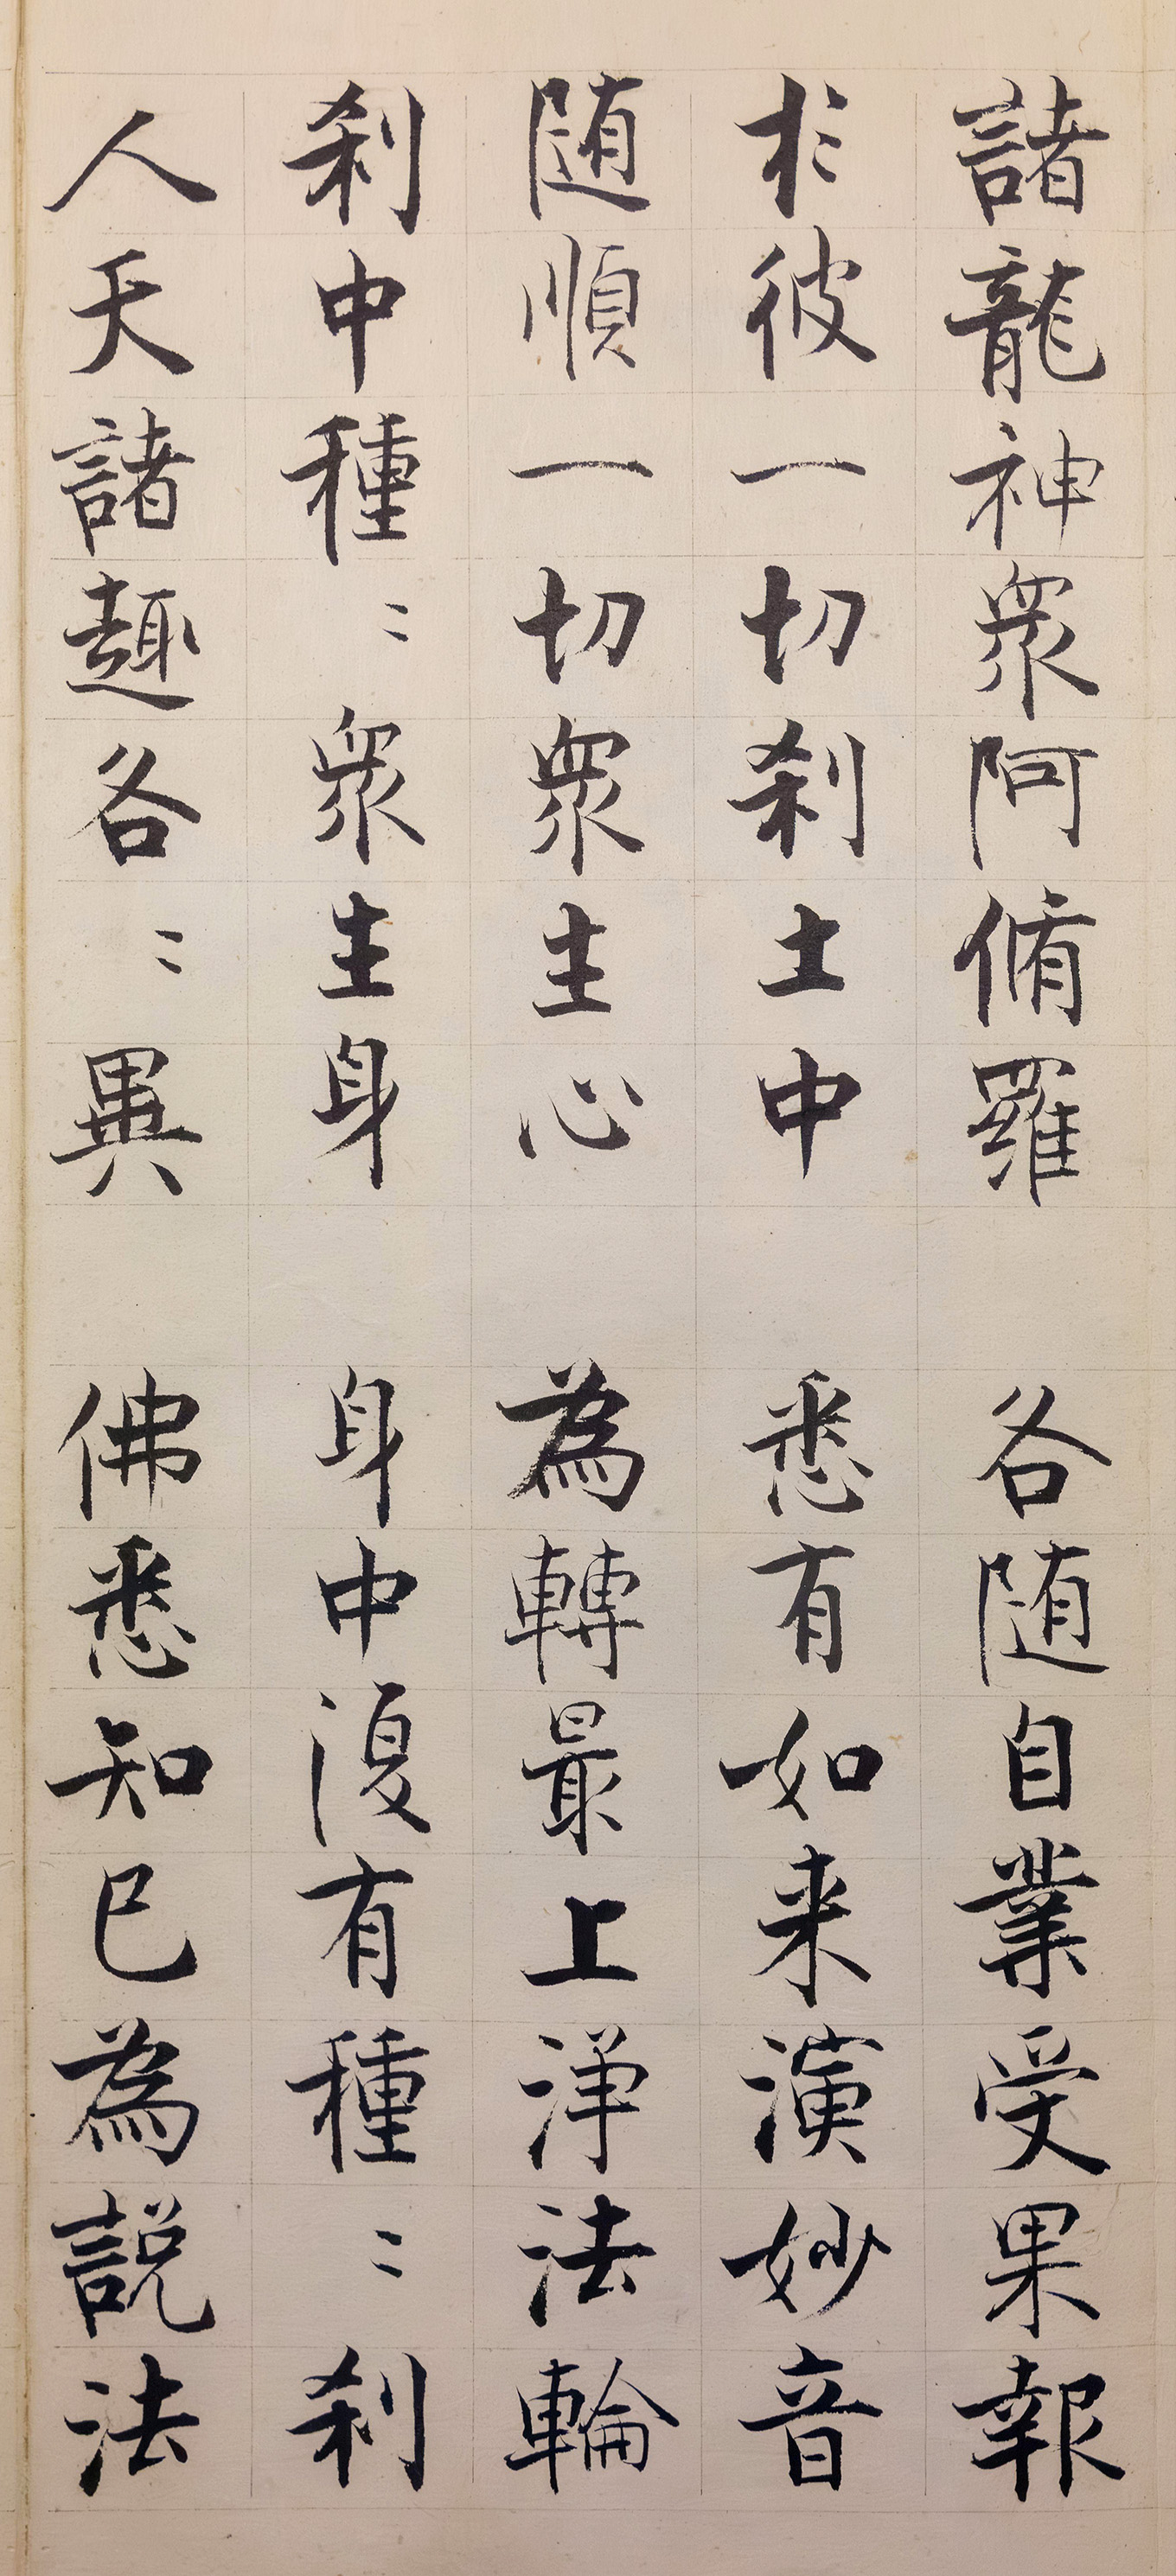 諸龍神衆阿脩羅　各随自業受果報
於彼一切刹土中　悉有如来演妙音
随順一切衆生心　為轉最上淨法輪
刹中種〻衆生身　身中復有種〻刹
人天諸趣各〻異　佛悉知已為說法